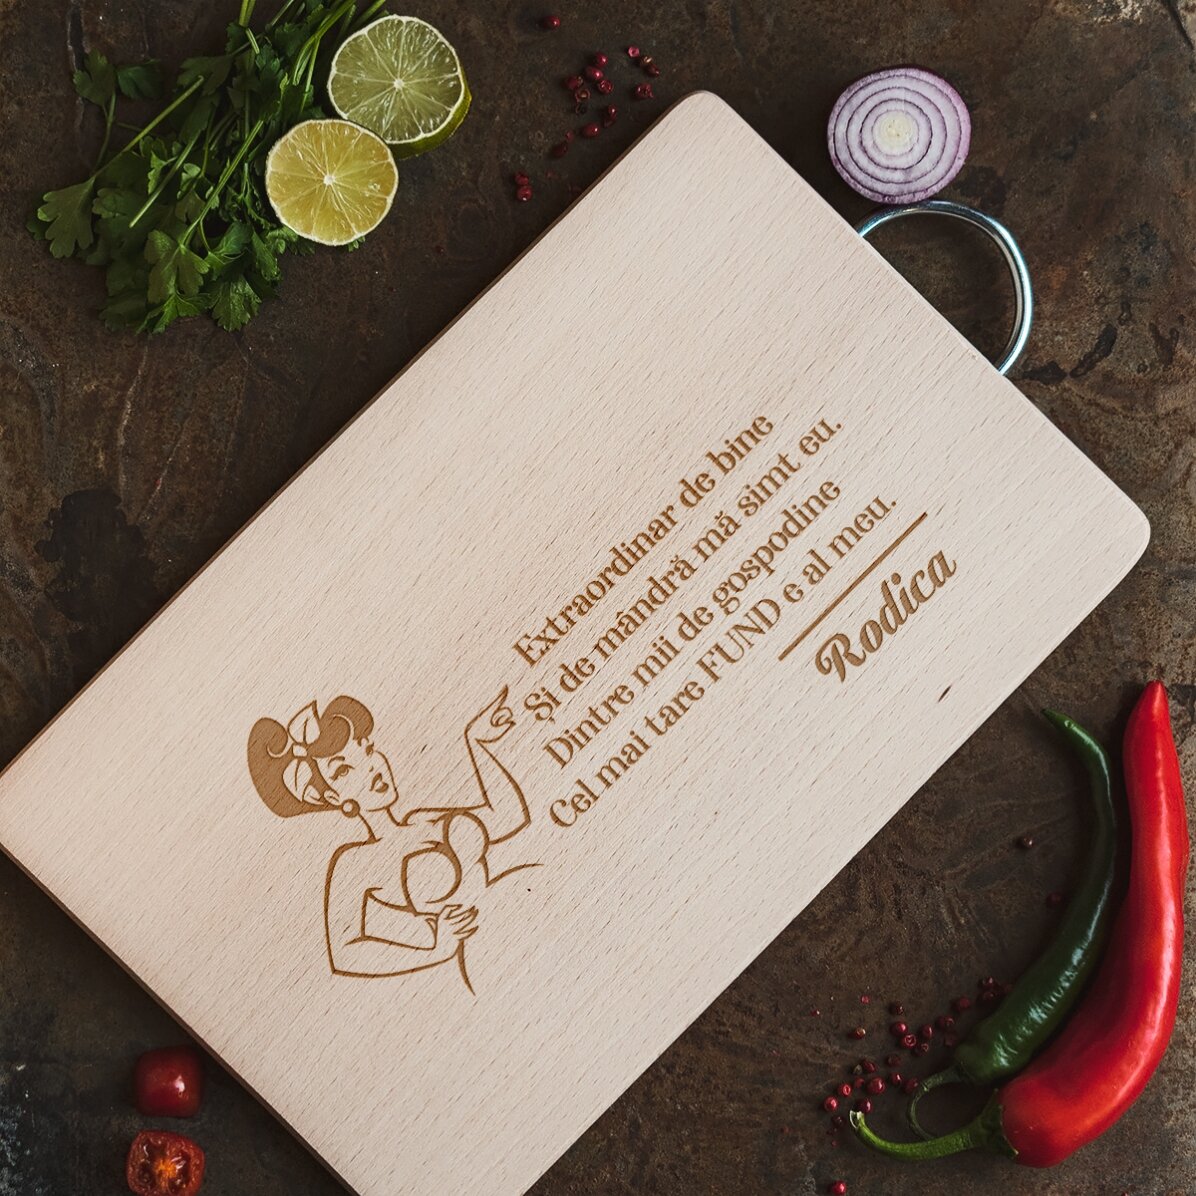 Extraordinar de bine
Și de mândră mă simt eu.
Dintre mii de gospodine
Cel mai tare FUND e al meu.
Rodica